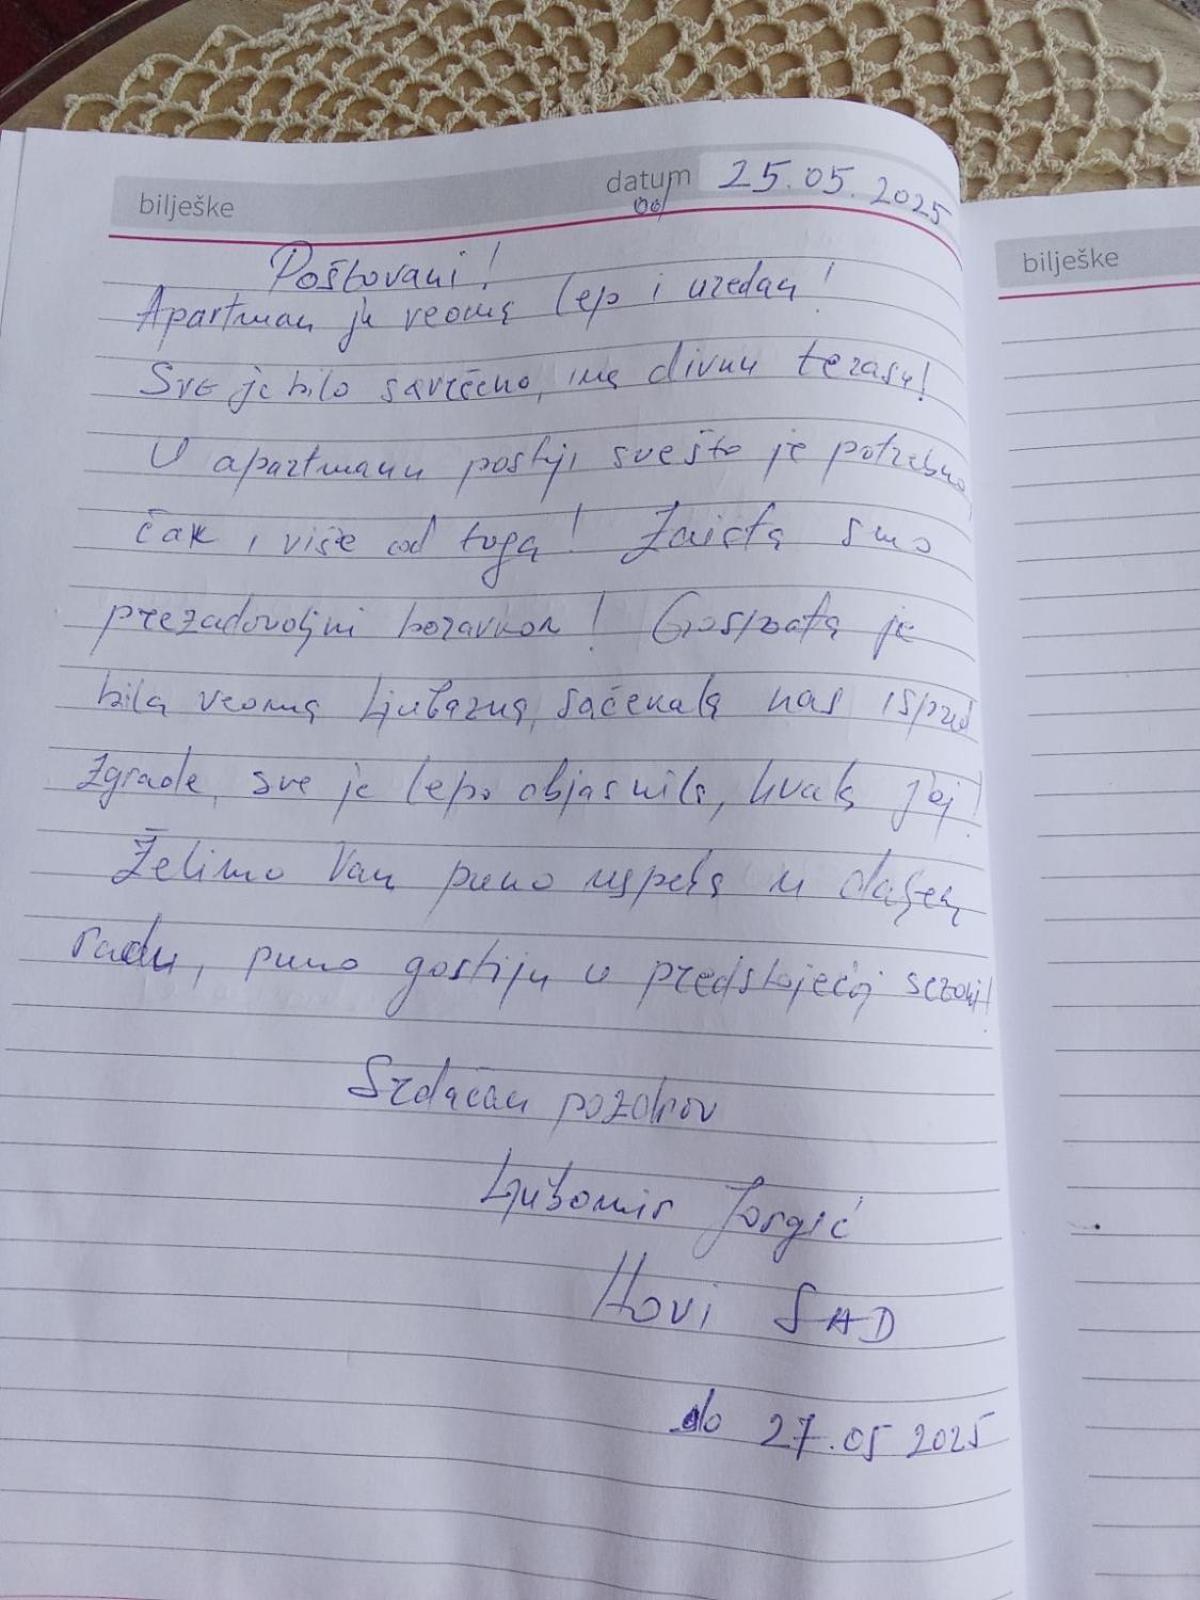 bilješke datum 25.05.2025
od
Poštovani!
Apartman je veoma lep i uredan!
Sve je bilo savršeno, ima divnu terasu!
U apartmanu postoji sve što je potrebno,
čak i više od toga! Zaista smo
prezadovoljni boravkom! Gospođa je
bila veoma ljubazna, sačekala nas ispred
zgrade, sve je lepo objasnila, hvala joj!
Želimo Vam puno uspeha u daljem
radu, puno gostiju u predstojećoj sezoni!
Srdačan pozdrav
Ljubomir
Novi SAD
do 27.05 2025
bilješke